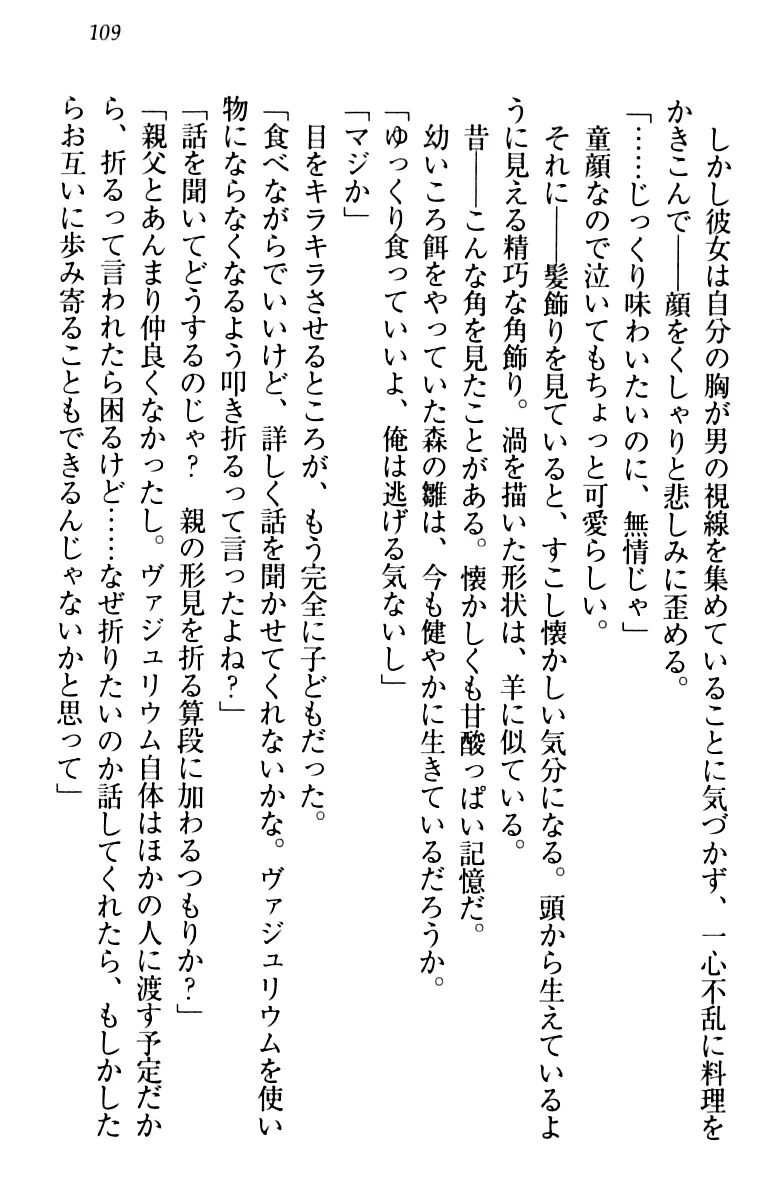 109
しかし彼女は自分の胸が男の視線を集めていることに気づかず、一心不乱に料理を
かきこんで――顔をくしゃりと悲しみに歪める。
「……じっくり味わいたいのに、無情じゃ」
童顔なので泣いてもちょっと可愛らしい。
それに――髪飾りを見ていると、すこし懐かしい気分になる。頭から生えているよ
うに見える精巧な角飾り。渦を描いた形状は、羊に似ている。
昔――こんな角を見たことがある。懐かしくも甘酸っぱい記憶だ。
幼いころ餌をやっていた森の雛は、今も健やかに生きているだろうか。
「ゆっくり食っていいよ、俺は逃げる気ないし」
「マジか」
目をキラキラさせるところが、もう完全に子どもだった。
「食べながらでいいけど、詳しく話を聞かせてくれないかな。ヴァジュリウムを使い
物にならなくなるよう叩き折るって言ったよね？」
「話を聞いてどうするのじゃ？　親の形見を折る算段に加わるつもりか？」
「親父とあんまり仲良くなかったし。ヴァジュリウム自体はほかの人に渡す予定だか
ら、折るって言われたら困るけど……なぜ折りたいのか話してくれたら、もしかした
らお互いに歩み寄ることもできるんじゃないかと思って」